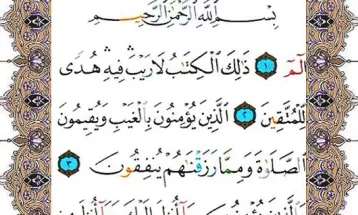 بِسْمِ اللَّهِ الرَّحْمَٰنِ الرَّحِيمِ
الٓمٓ ۝١ ذَٰلِكَ الْكِتَابُ لَا رَيْبَ ۛ فِيهِ ۛ هُدًى
لِّلْمُتَّقِينَ ۝٢ الَّذِينَ يُؤْمِنُونَ بِالْغَيْبِ وَيُقِيمُونَ
الصَّلَاةَ وَمِمَّا رَزَقْنَاهُمْ يُنفِقُونَ ۝٣